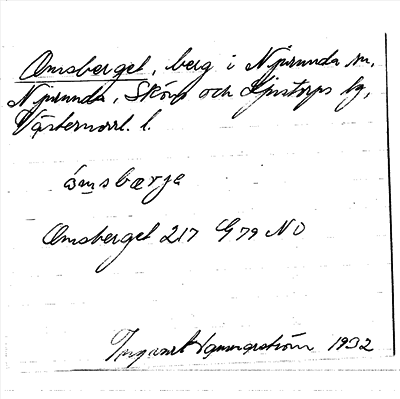 Omsberget, berg i Njurunda sn,
Njurunda, Sköns och Ljustorps tg,
Västernorrl. l.
ómsbærje
Omsberget 217 G 79 NO
Ingvar 1932